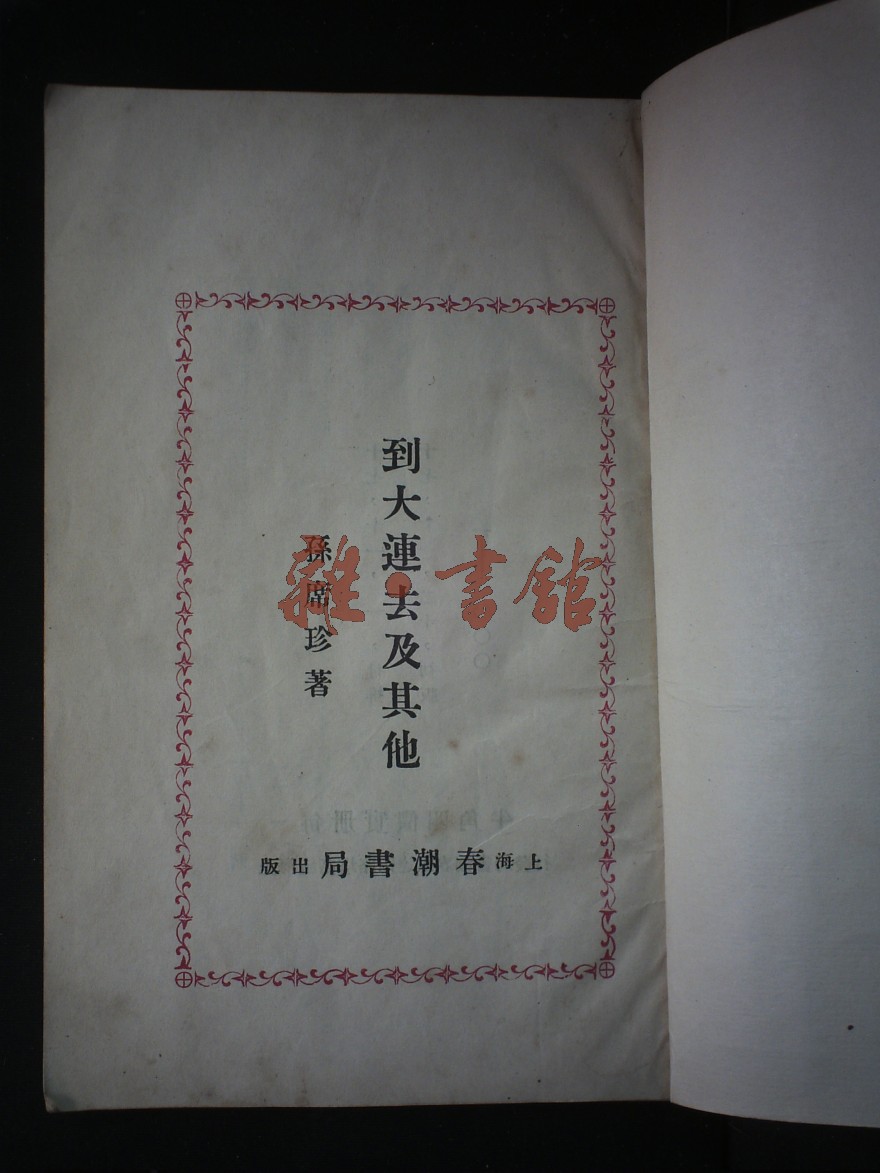 到大連去及其他
孫席珍著
上海春潮書局出版
雜·書館